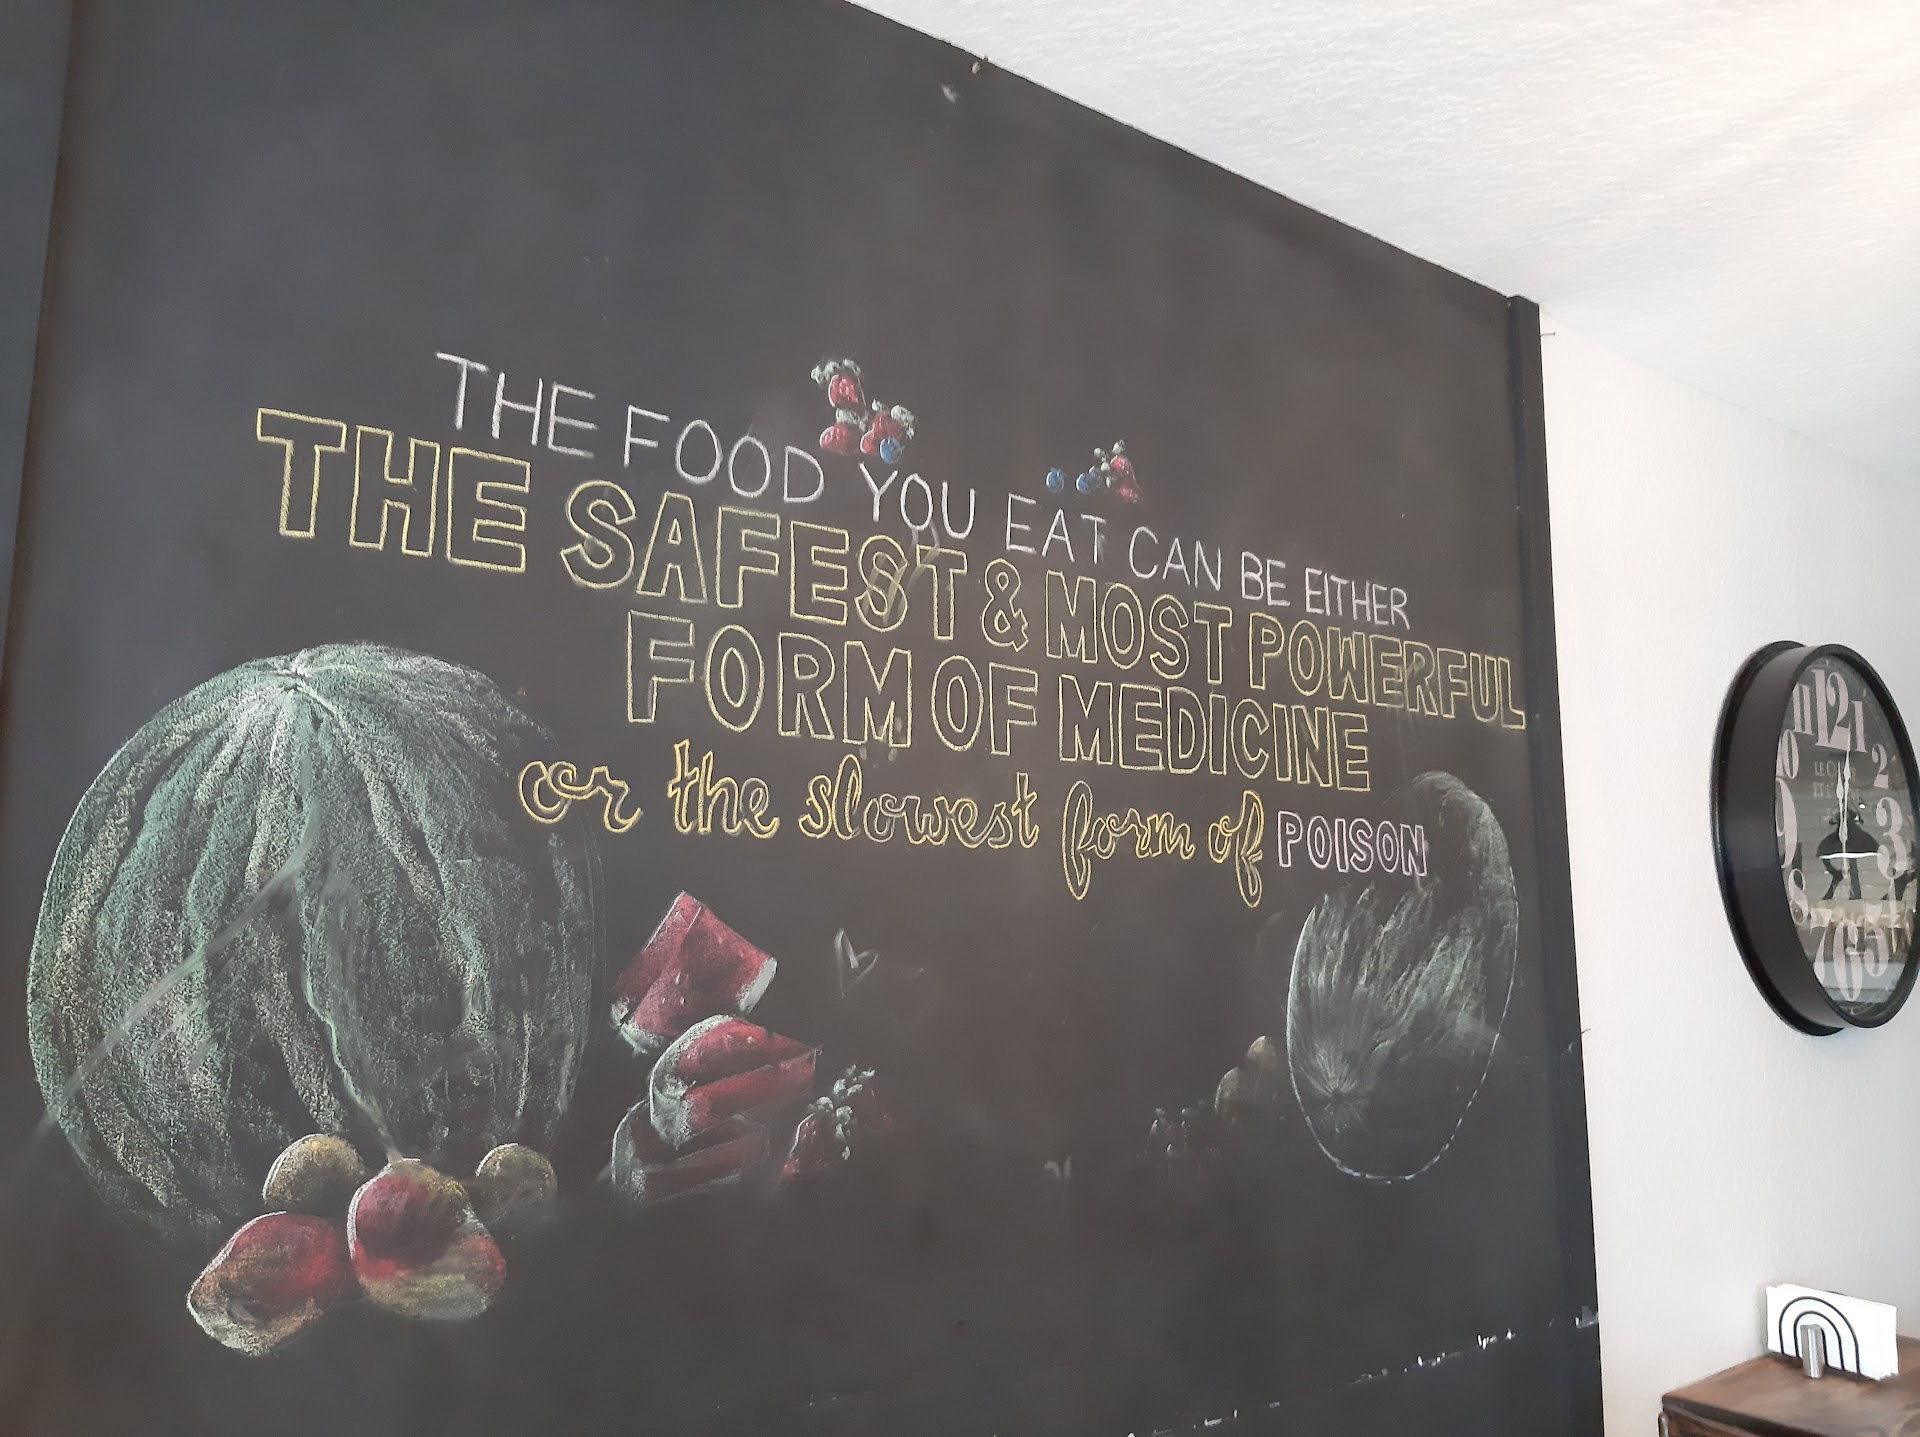 THE FOOD YOU EAT CAN BE EITHER
THE SAFEST & MOST POWERFUL
FORM OF MEDICINE
or the slowest form of POISON
11 12 1
2
3
5
6
7
8
9